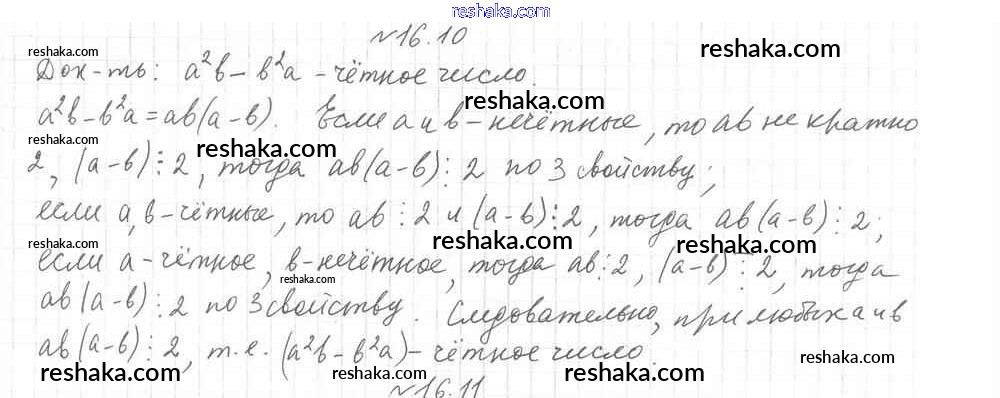 reshaka.com
№16.10
Док-ть: a²b - b²a - чётное число.
a²b - b²a = ab(a-b). Если a и b - нечётные, то ab не кратно
2, (a-b)⋮2, тогда ab(a-b)⋮2 по 3 свойству;
если a,b - чётные, то ab⋮2 и (a-b)⋮2, тогда ab(a-b)⋮2;
если a - чётное, b - нечётное, тогда ab⋮2, (a-b)⋮2, тогда
ab(a-b)⋮2 по 3 свойству. Следовательно, при любых a и b
ab(a-b)⋮2, т.е. (a²b - b²a) - чётное число.
№16.11
reshaka.com
reshaka.com
reshaka.com
reshaka.com
reshaka.com
reshaka.com
reshaka.com
reshaka.com
reshaka.com
reshaka.com
reshaka.com
reshaka.com
reshaka.com